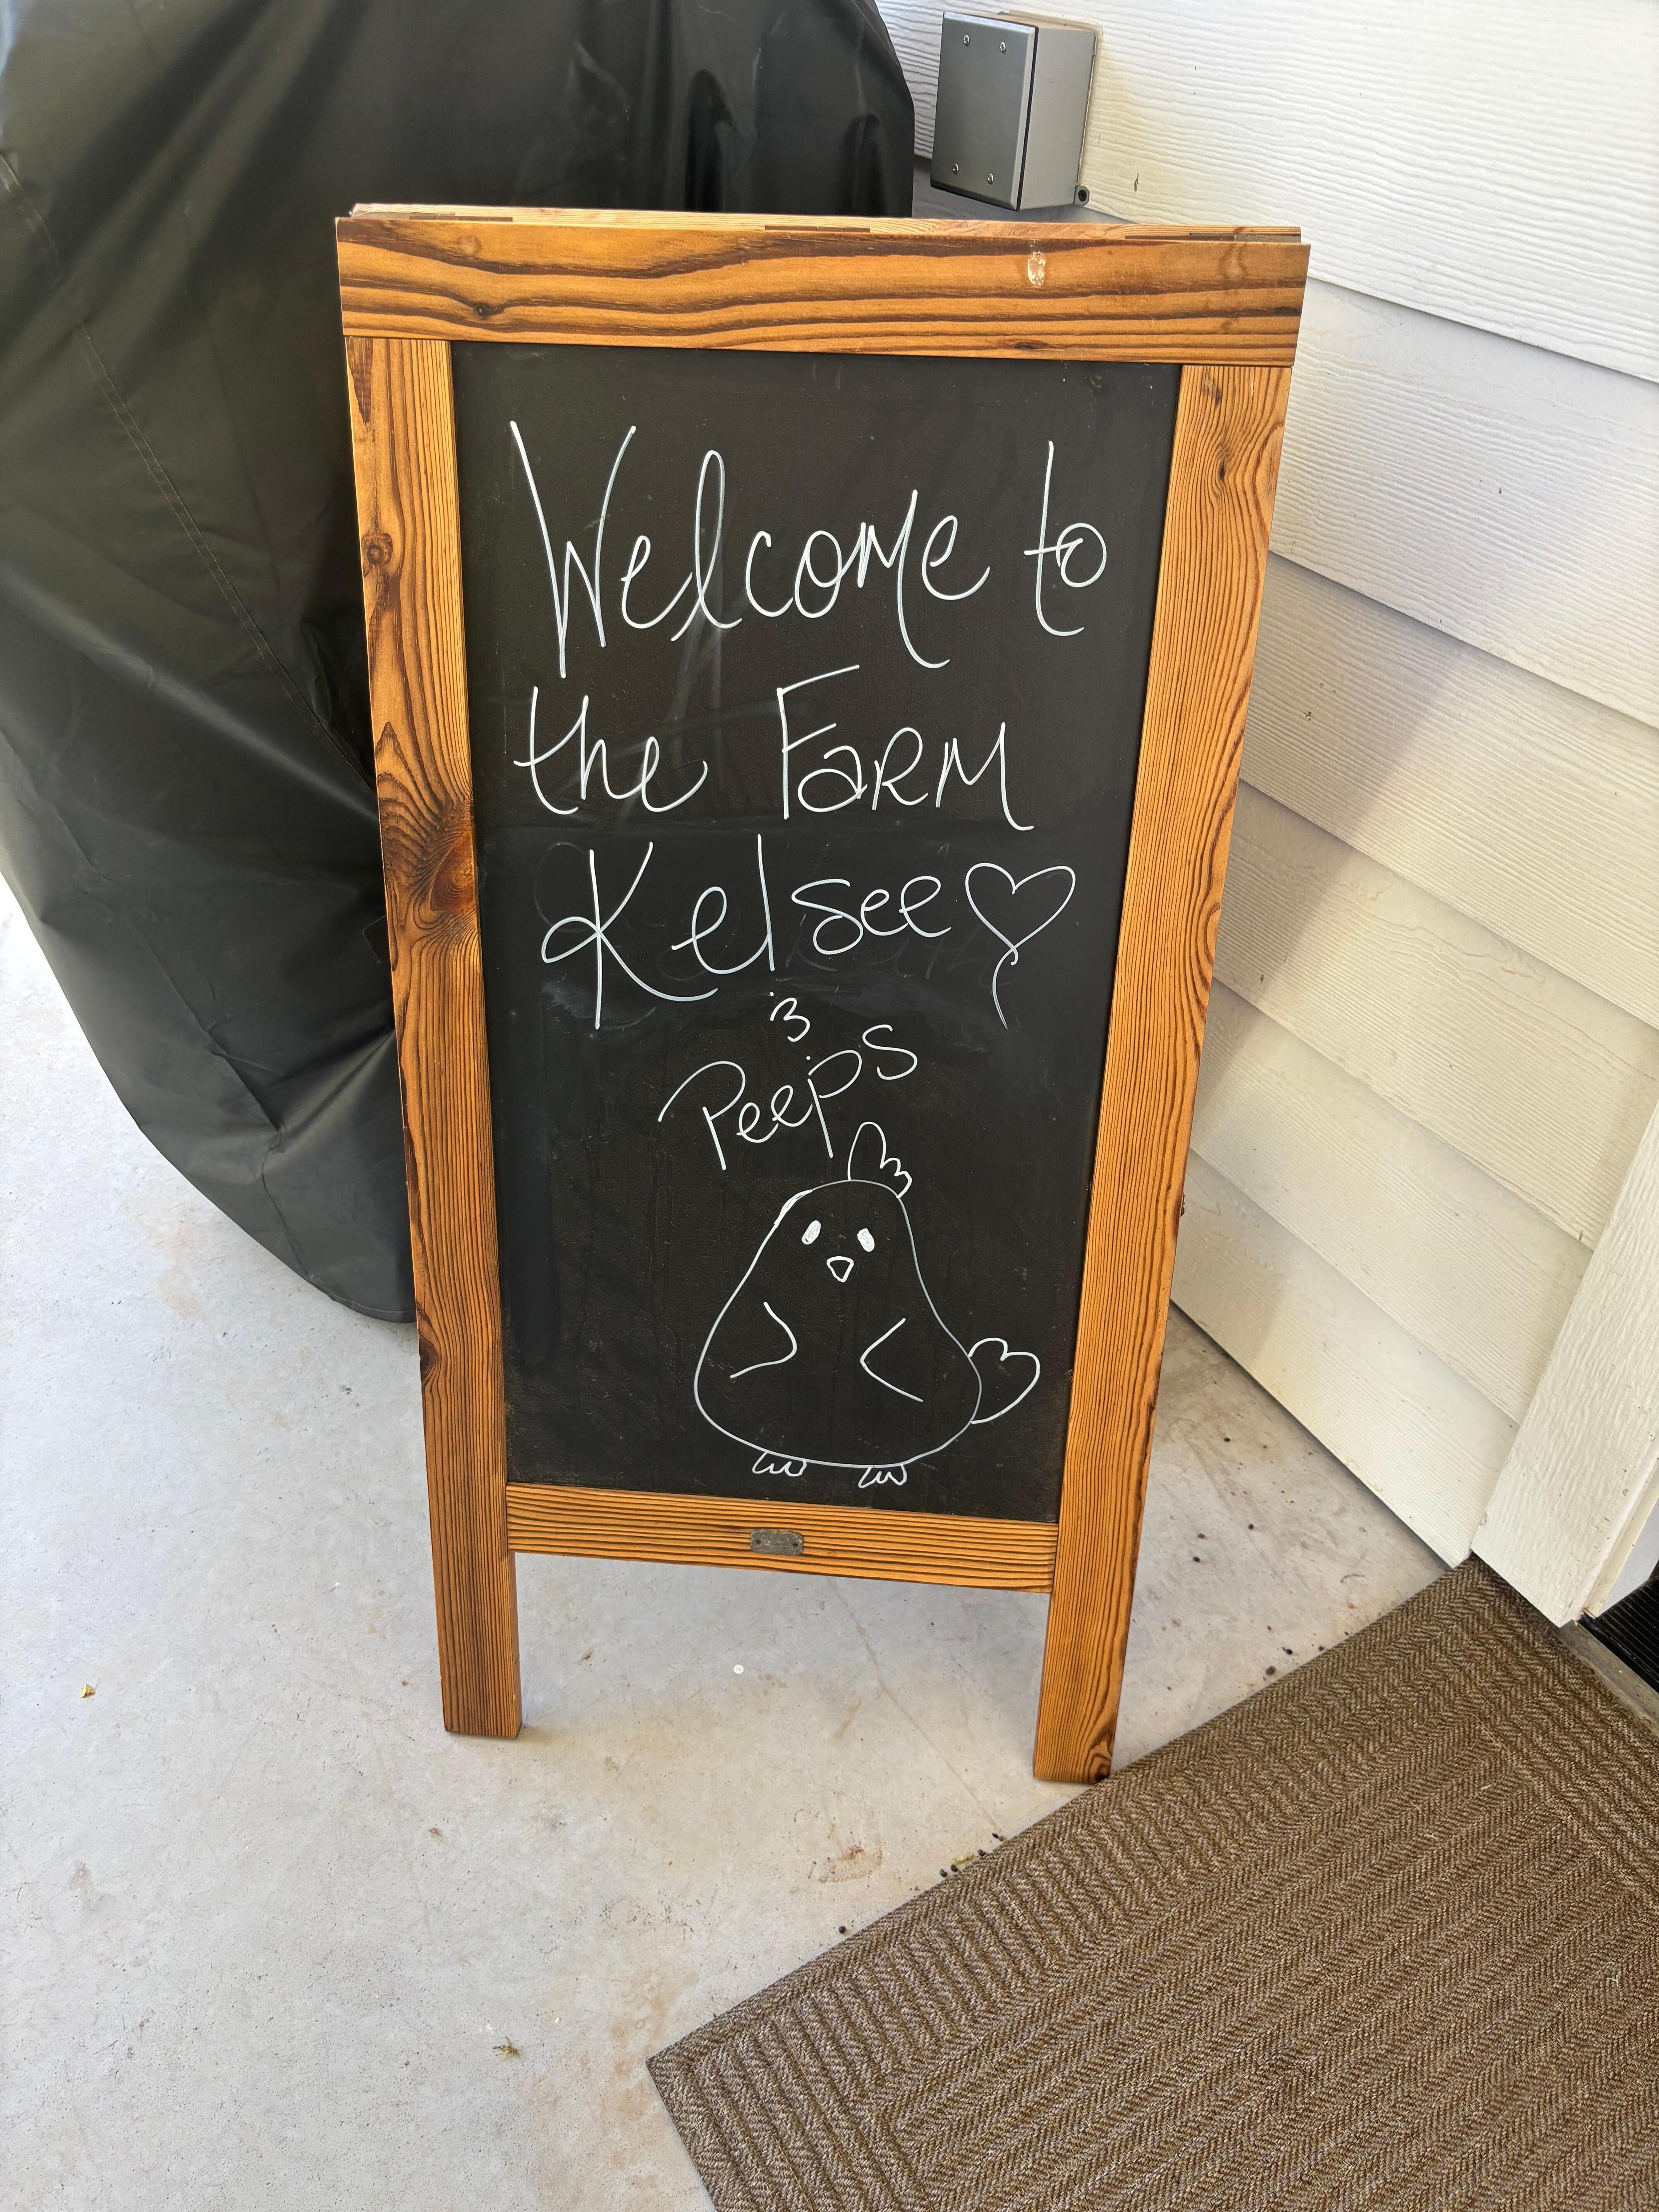 Welcome to
the Farm
Kelsee♡
&
Peeps